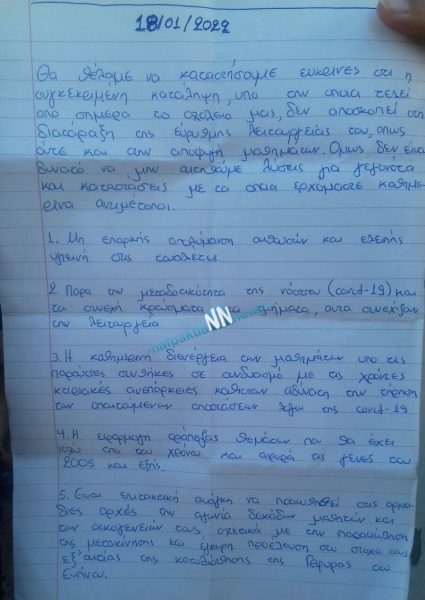 18/01/2022
Θα θέλαμε να καταστήσουμε ευκρινες οτι η
συγκεκριμένη κατάληψη, υπο την οποια τελεί
απο σημερα το σχολείο μας, δεν αποσκοπεί στη
διαταραξη της εύρυθμης λειτουργείας του, οπως
ούτε και στην αποφυγή μαθημάτων. Ομως δεν είναι
δυνατό να μην αιτηθούμε λύσεις για γεγονότα
και καταστάσεις με τα οποια ερχόμαστε καθημε
ρινα αντιμέτοποι.
1. Μη επαρκής απολύμανση αιθουσών και ελειπής
υγιεινή στις τουαλέτες
2 Παρα την μεταδοτικότητα της νόσου (covid-19) και
τα συνεχή κρούσματα στα τμήματα, αυτα συνεχίζουν
την λειτουργεία
3. Η καθημερινή διενέργεια των μαθημάτων υπο τις
παρούσες συνθήκες σε συνδυασμό με τις χρόνιες
κτιριακές ανεπάρκειες καθιστουν αδύνατη την τήρηση
των απαιτουμενων αποστάσεων λόγω της covid-19
4. Η εφαρμογη τράπεζας θεμάτων που θα έχει
ισχυ απο του χρόνου και αφορά τις γενιες του
2005 και εξής.
5. Είναι επιτακτική ανάγκη να προωθηθεί στις αρμο
διες αρχές την αγωνία δεκάδων μαθητών και
των οικογενειών τους, σχετικά με την παρακώληση
της μετακίνησης και έγκυρη προέλευση στο στοχο τους
εξ'αιτίας της κατολίσθησης της Γέφυρας του
Ευήνου.
NN